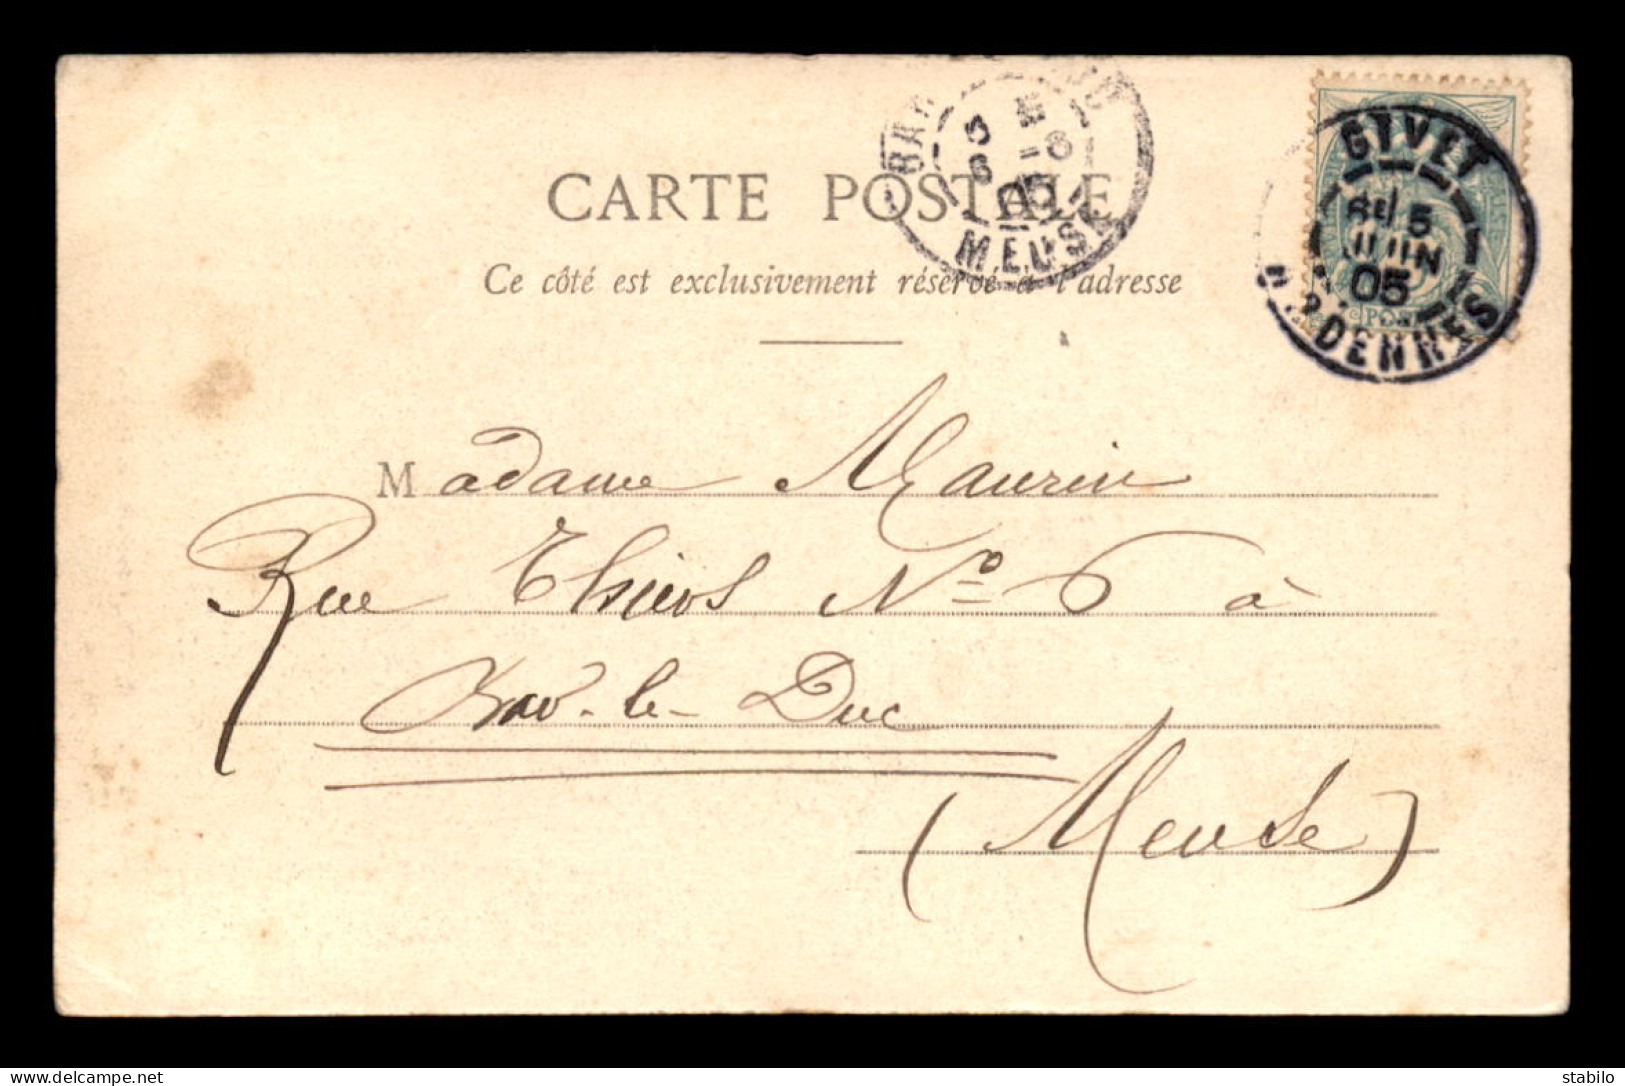 CARTE POSTALE
Ce côté est exclusivement réservé à l'adresse
BAR DUC
5 6 - 6
05
MEUSE
GIVET
5
JUIN
05
ARDENNES
Madame Maurin
Rue Thiers No 6 à
Bar-le-Duc
(Meuse)
delcampe.net
stabilo